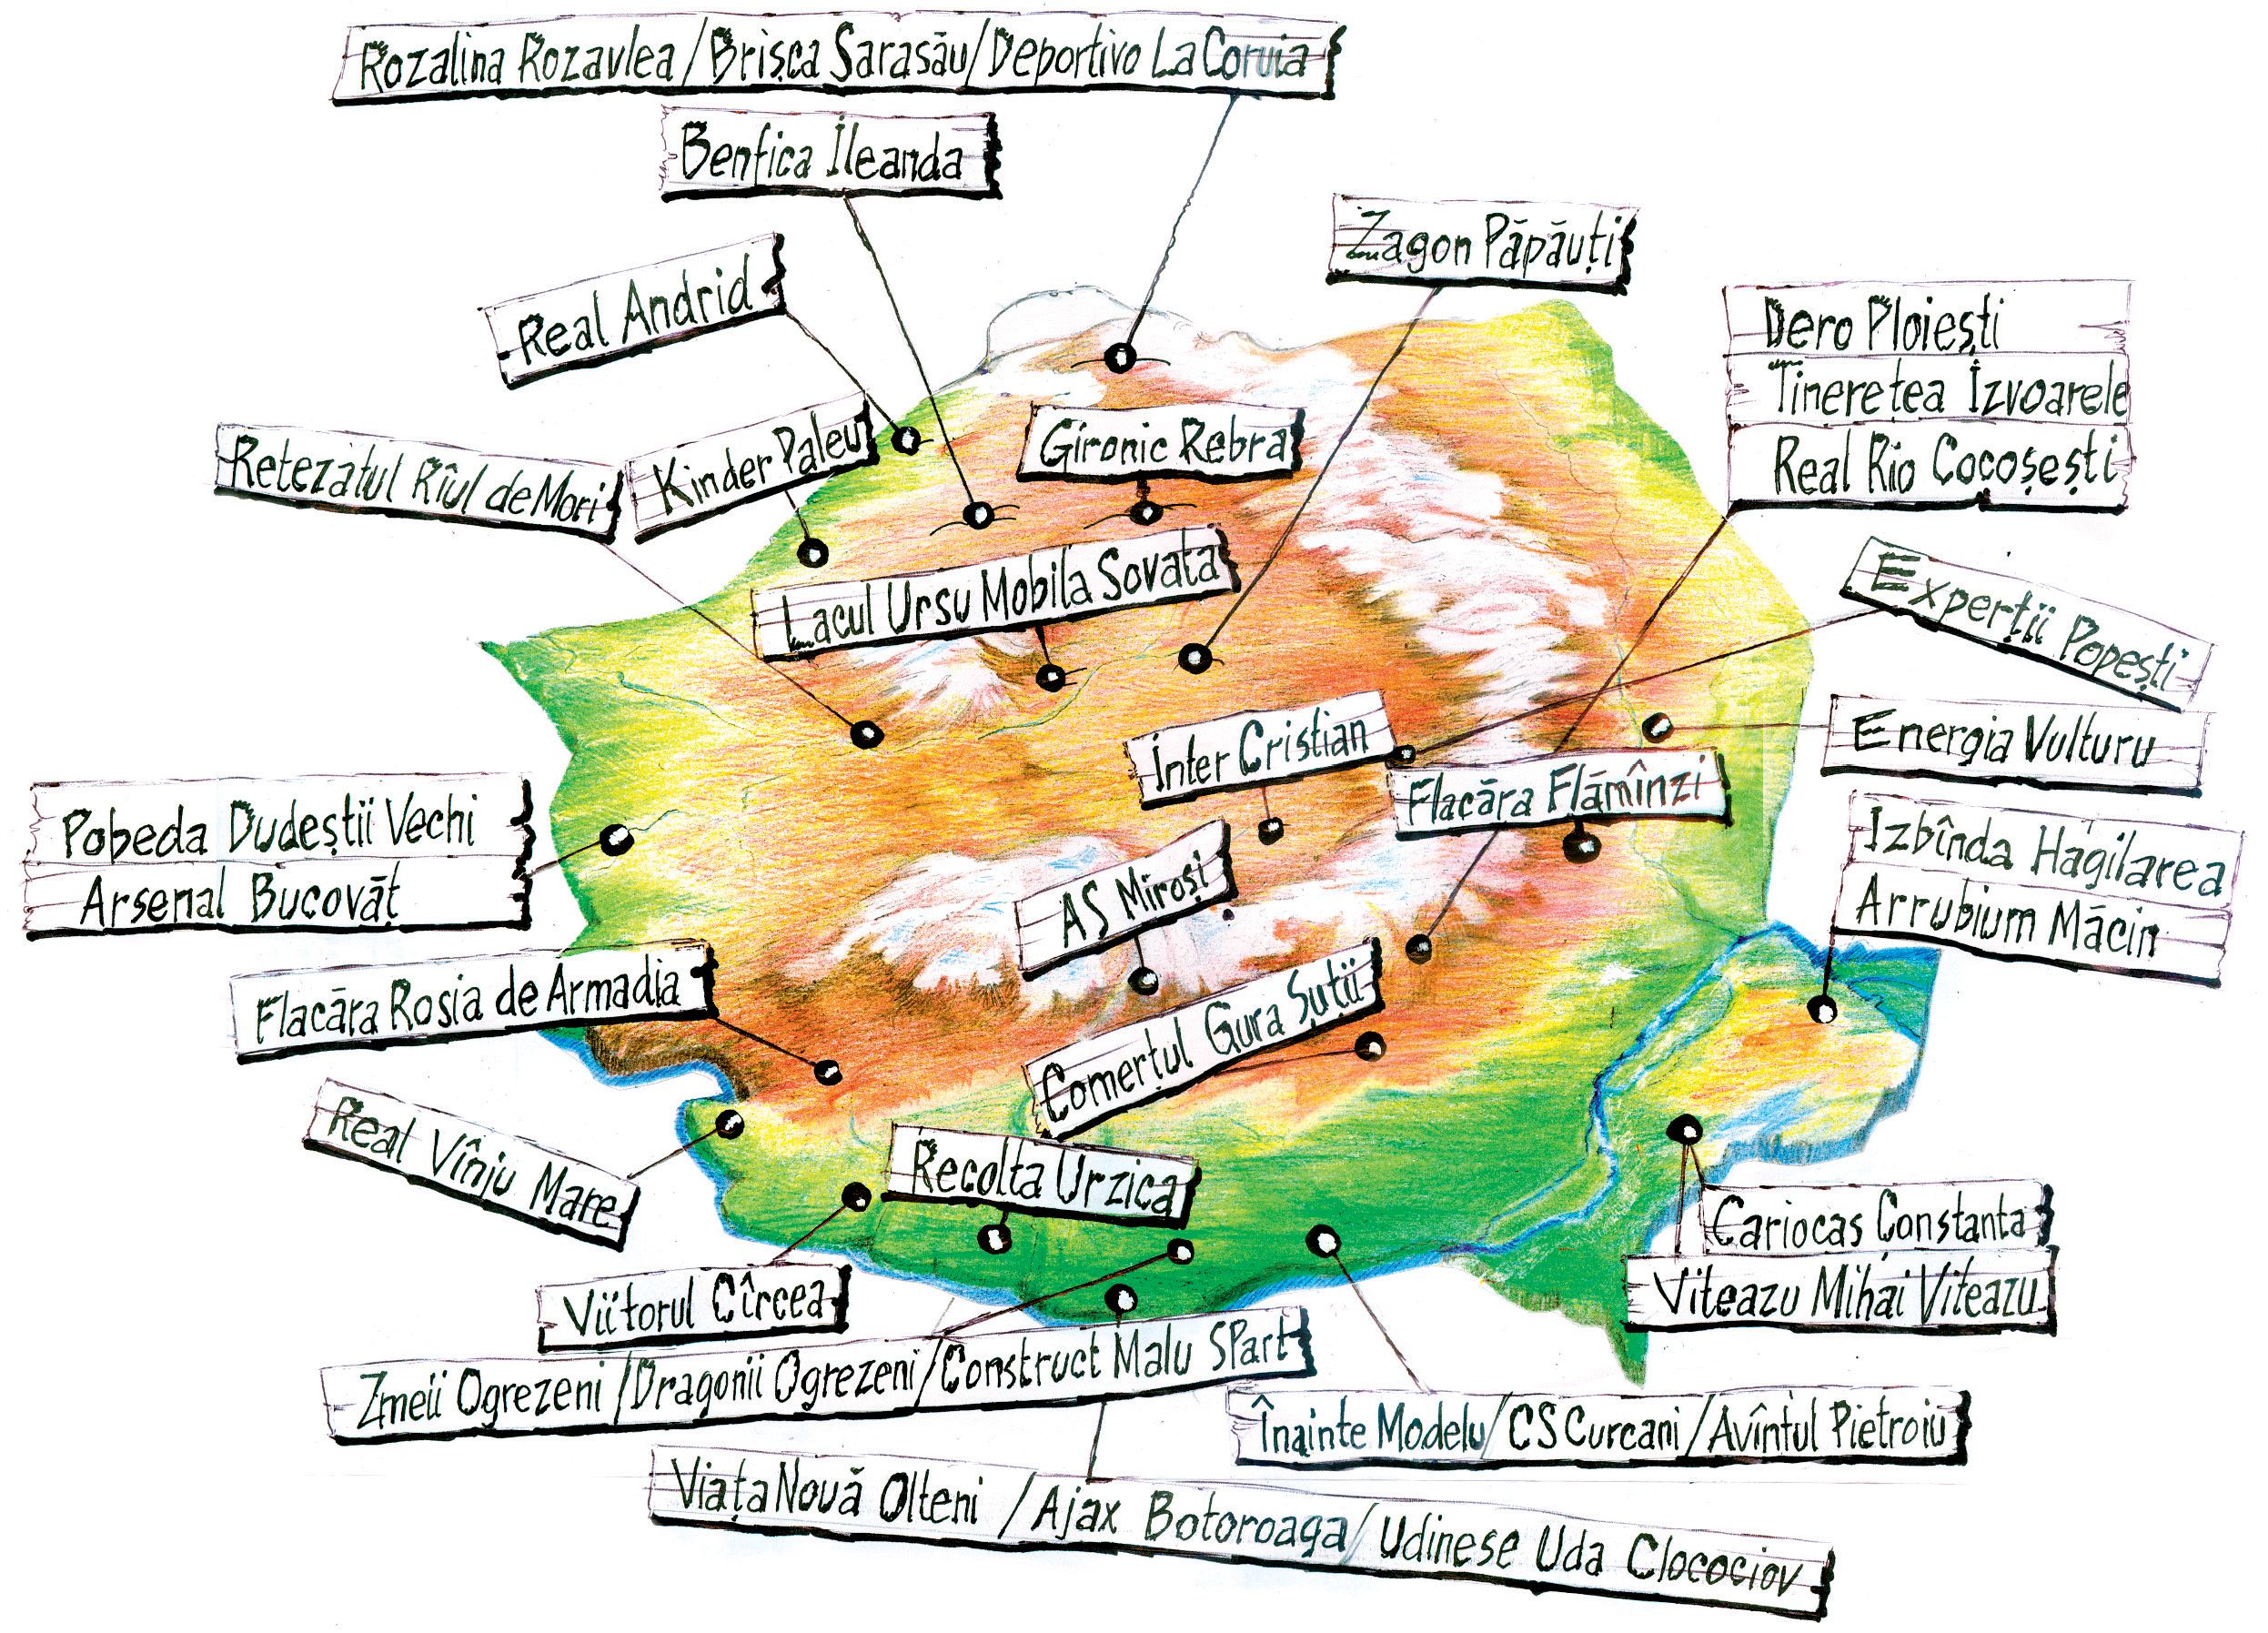 Rozalina Rozavlea/Brișca Sarasău/Deportivo La Coruia
Benfica Ileanda
Zagon Păpăuți
Real Andrid
Dero Ploiești
Tineretea Izvoarele
Real Rio Cocoșești
Retezatul Rîul de Mori
Kinder Paleu
Gironic Rebra
Lacul Ursu Mobila Sovata
Experții Popești
Inter Cristian
Energia Vulturu
Flacăra Flămînzi
Pobeda Dudeștii Vechi
Arsenal Bucovăț
Izbînda Hagilarea
Arrubium Măcin
AS Miroși
Flacăra Rosia de Armadia
Comerțul Gura Șuții
Real Vînju Mare
Recolta Urzica
Cariocas Constanta
Viteazu Mihai Viteazu
Viitorul Cîrcea
Zmeii Ogrezeni/Dragonii Ogrezeni/Construct Malu SPart
Înainte Modelu/CS Curcani/Avîntul Pietroiu
Viața Nouă Olteni/Ajax Botoroaga/Udinese Uda Clocociov